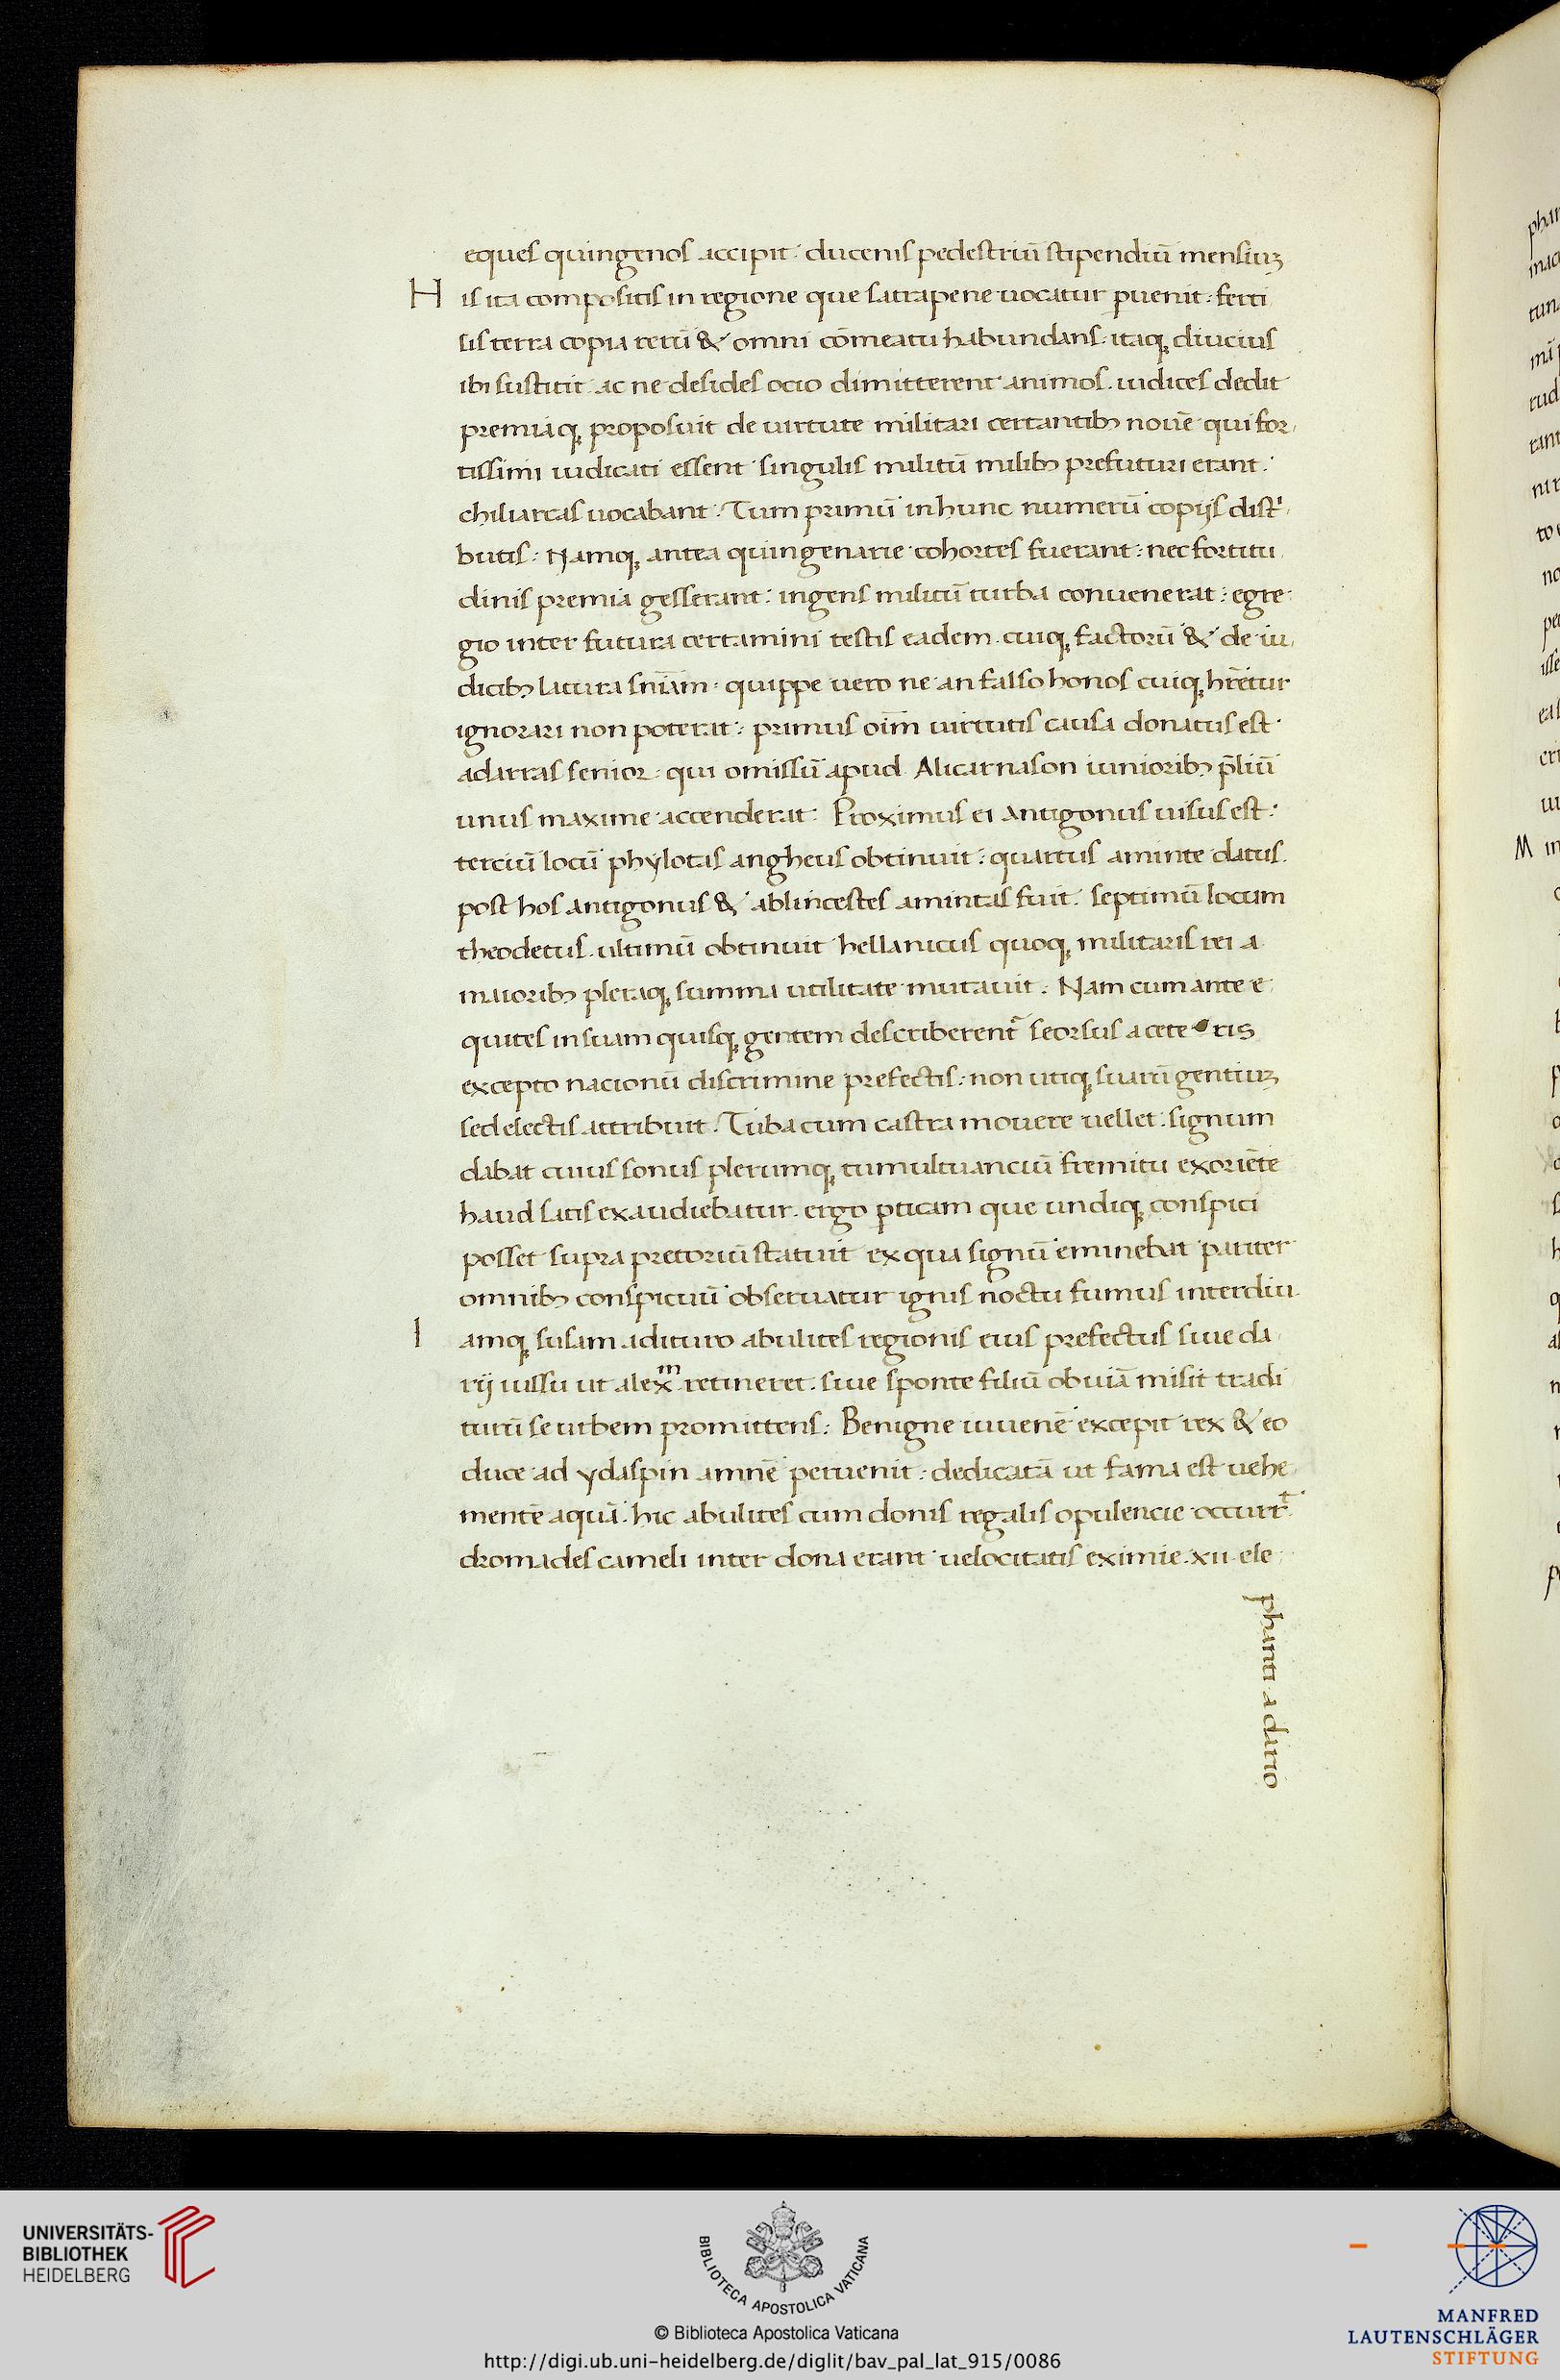 eques quingenos accipit· ducenis pedestriū stipendiū mensiuꝫ
His ita compositis in regione que satrapene uocatur ꝑuenit: ferti
lis terra copia rerū & omni cōmeatu habundans· itaqꝫ diucius
ibi sustitit· ac ne desides ocio dimitterent animos. iudices dedit
premiaqꝫ proposuit de uirtute militari certantibꝫ nouē qui for
tissimi iudicati essent singulis militū milibꝫ prefuturi erant.
chiliarcas uocabant. Tum primū in hunc numerū copijs distⁱ
butis: Namqꝫ antea quingenarie cohortes fuerant: nec fortitu
dinis premia gesserant: ingens militū turba conuenerat: egre
gio inter futura certamini testis eadem. cuiqꝫ factorū & de iu
dicibꝫ latura sn̄iam· quippe uero ne an falso honos cuiqꝫ hr̄etur
ignorari non poterat: primus oim̄ uirtutis causa donatus est·
adarras senior· qui omissū apud Alicarnason iunioribꝫ p̄liū
unus maxime accenderat: Proximus ei Antigonus uisus est:
terciū locū phylotas angheus obtinuit: quartus aminte datus.
post hos antigonus & ablincestes amintas fuit. septimū locum
theodetus. ultimū obtinuit hellanicus quoqꝫ militaris rei a
maioribꝫ pleraqꝫ summa utilitate mutauit. Nam cum ante e
quites in suam quisqꝫ gentem describerent᷑ seorsus a cete ris
excepto nacionū discrimine prefectis: non utiqꝫ suarū gentiuꝫ
sed electis attribuit. Tuba cum castra mouere uellet. signum
dabat cuius sonus plerumqꝫ tumultuanciū fremitu exoriēte
haud satis exaudiebatur. ergo ꝑticam que undiqꝫ conspici
posset supra pretoriū statuit ex qua signū eminebat pariter
omnibꝫ conspicuū obseruatur ignis noctu fumus interdiu.
Iamqꝫ susam adituro abulites regionis eius prefectus siue da
rij iussu ut alexᵐ retineret. siue sponte filiū obuiā misit tradi
turū se urbem promittens: Benigne iuuenē excepit rex & eo
duce ad ydaspin amnē peruenit: dedicatā ut fama est uehe
mentē aquā. hic abulites cum donis regalis opulencie occurr᷑t.
dromades cameli inter dona erant uelocitatis eximie. xii ele
phanti a dario
UNIVERSITÄTS-
BIBLIOTHEK
HEIDELBERG
BIBLIOTECA APOSTOLICA VATICANA
© Biblioteca Apostolica Vaticana
http://digi.ub.uni-heidelberg.de/diglit/bav_pal_lat_915/0086
MANFRED
LAUTENSCHLÄGER
STIFTUNG